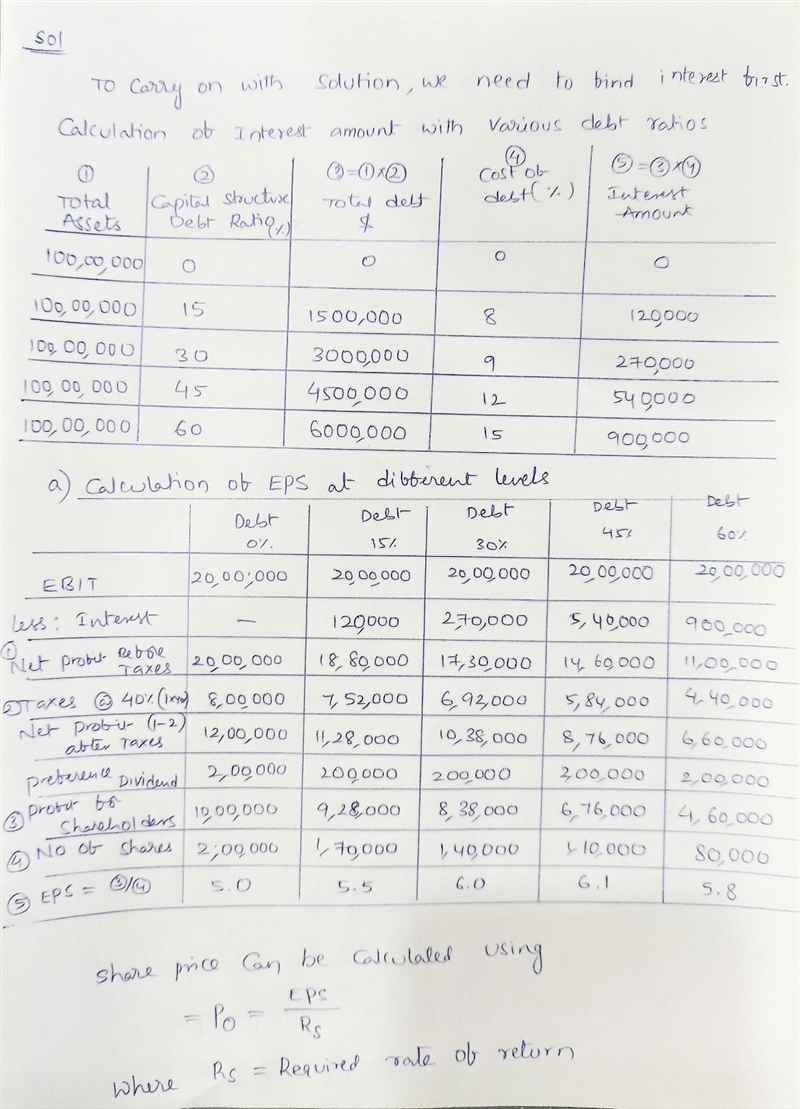 Sol
To carry on with solution, we need to bind interest first.
Calculation of Interest amount with various debt ratios
① ② ③=①×② ④ ⑤=③×④
Total Assets Capital Structure Debt Ratio(%) Total debt $ Cost of debt(%) Interest Amount
100,00,000 0 0 0 0
100,00,000 15 1500,000 8 120,000
100,00,000 30 3000,000 9 270,000
100,00,000 45 4500,000 12 540,000
100,00,000 60 6000,000 15 900,000
a) Calculation of EPS at different levels
Debt 0% Debt 15% Debt 30% Debt 45% Debt 60%
EBIT 20,00,000 20,00,000 20,00,000 20,00,000 20,00,000
less: Interest — 120,000 2,70,000 5,40,000 900,000
① Net profit before Taxes 20,00,000 18,80,000 17,30,000 14,60,000 11,00,000
② Taxes @ 40% 8,00,000 7,52,000 6,92,000 5,84,000 4,40,000
Net profit (1-2) after Taxes 12,00,000 11,28,000 10,38,000 8,76,000 6,60,000
preference Dividend 2,00,000 200,000 200,000 200,000 2,00,000
③ Profit for Shareholders 10,00,000 9,28,000 8,38,000 6,76,000 4,60,000
④ No of shares 2,00,000 1,70,000 1,40,000 1,10,000 80,000
⑤ EPS = ③/④ 5.0 5.5 6.0 6.1 5.8
Share price can be calculated using
= P0 = EPS / Rs
where Rs = Required rate of return